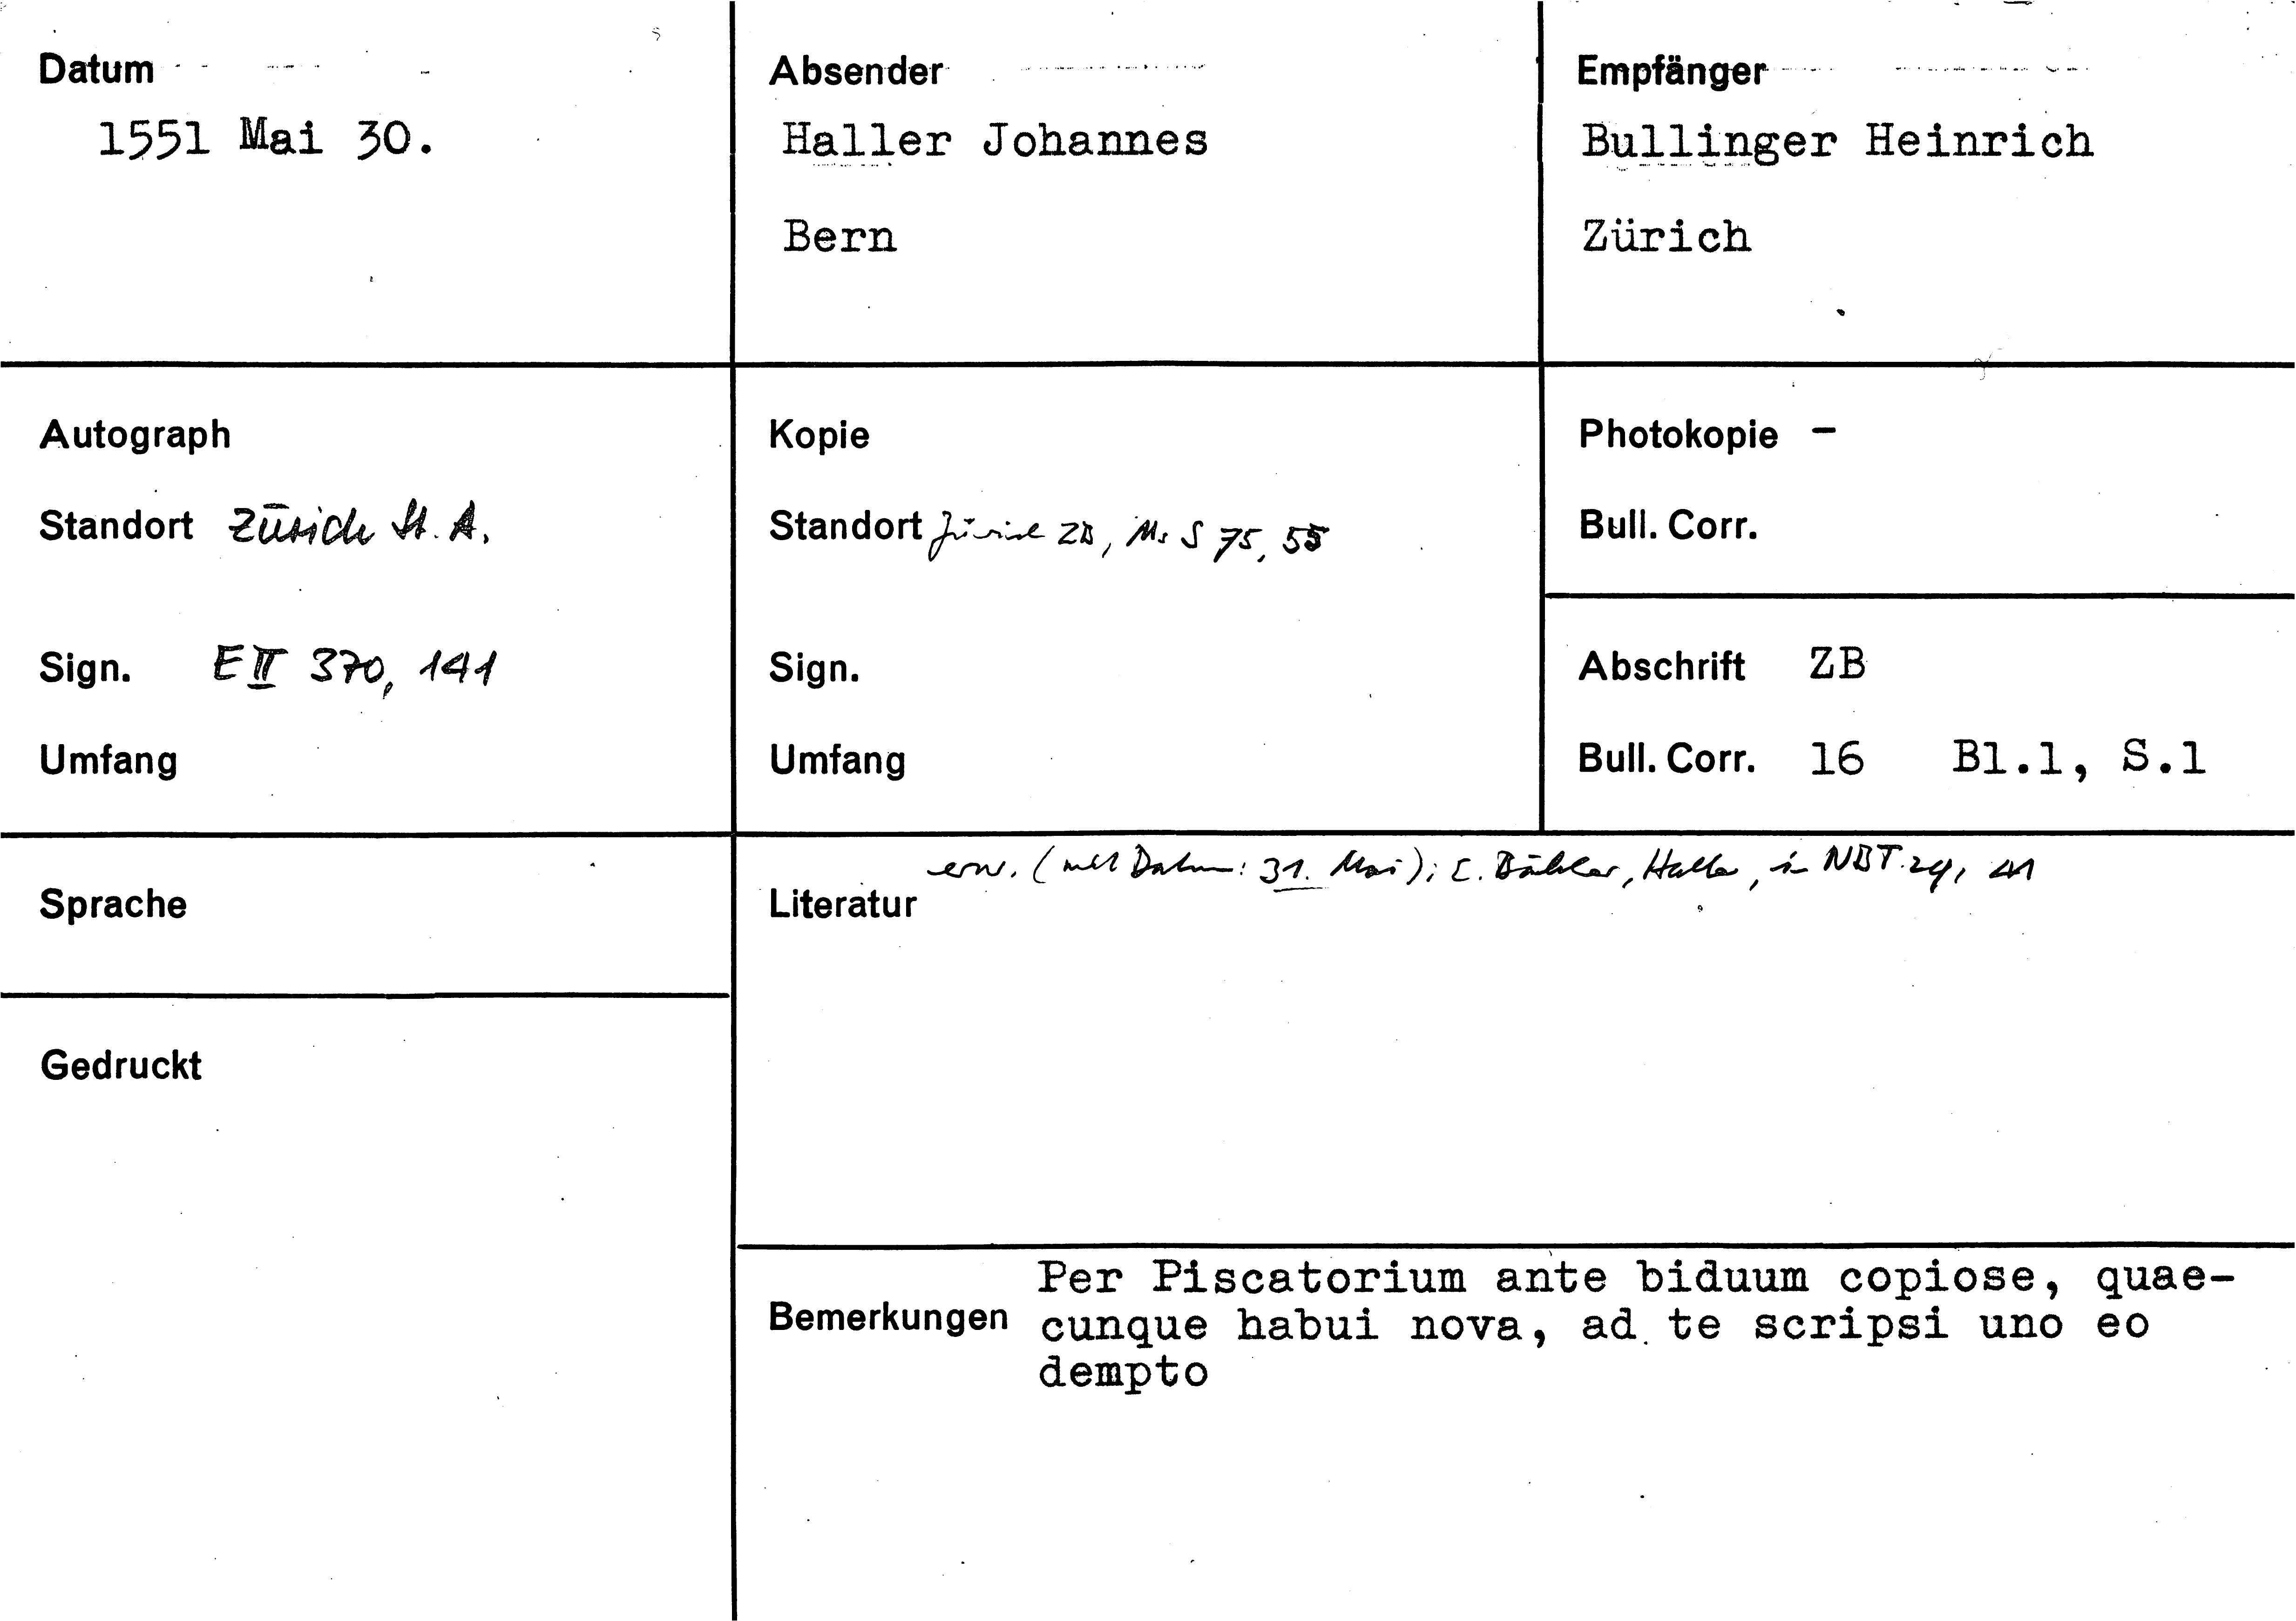 Datum
1551 Mai 30.
Absender
Haller Johannes
Bern
Empfänger
Bullinger Heinrich
Zürich
Autograph
Standort Zürich St. A.
Sign. E II 370, 141
Umfang
Kopie
Standort Zürich ZB, Ms S 75, 55
Sign.
Umfang
Photokopie –
Bull. Corr.
Abschrift ZB
Bull. Corr. 16 Bl.1, S.1
Sprache
Gedruckt
erw. (mit Datum: 31. Mai); E. Bähler, Haller, in NBT 29, 41
Literatur
Per Piscatorium ante biduum copiose, quae-
Bemerkungen cunque habui nova, ad te scripsi uno eo
dempto